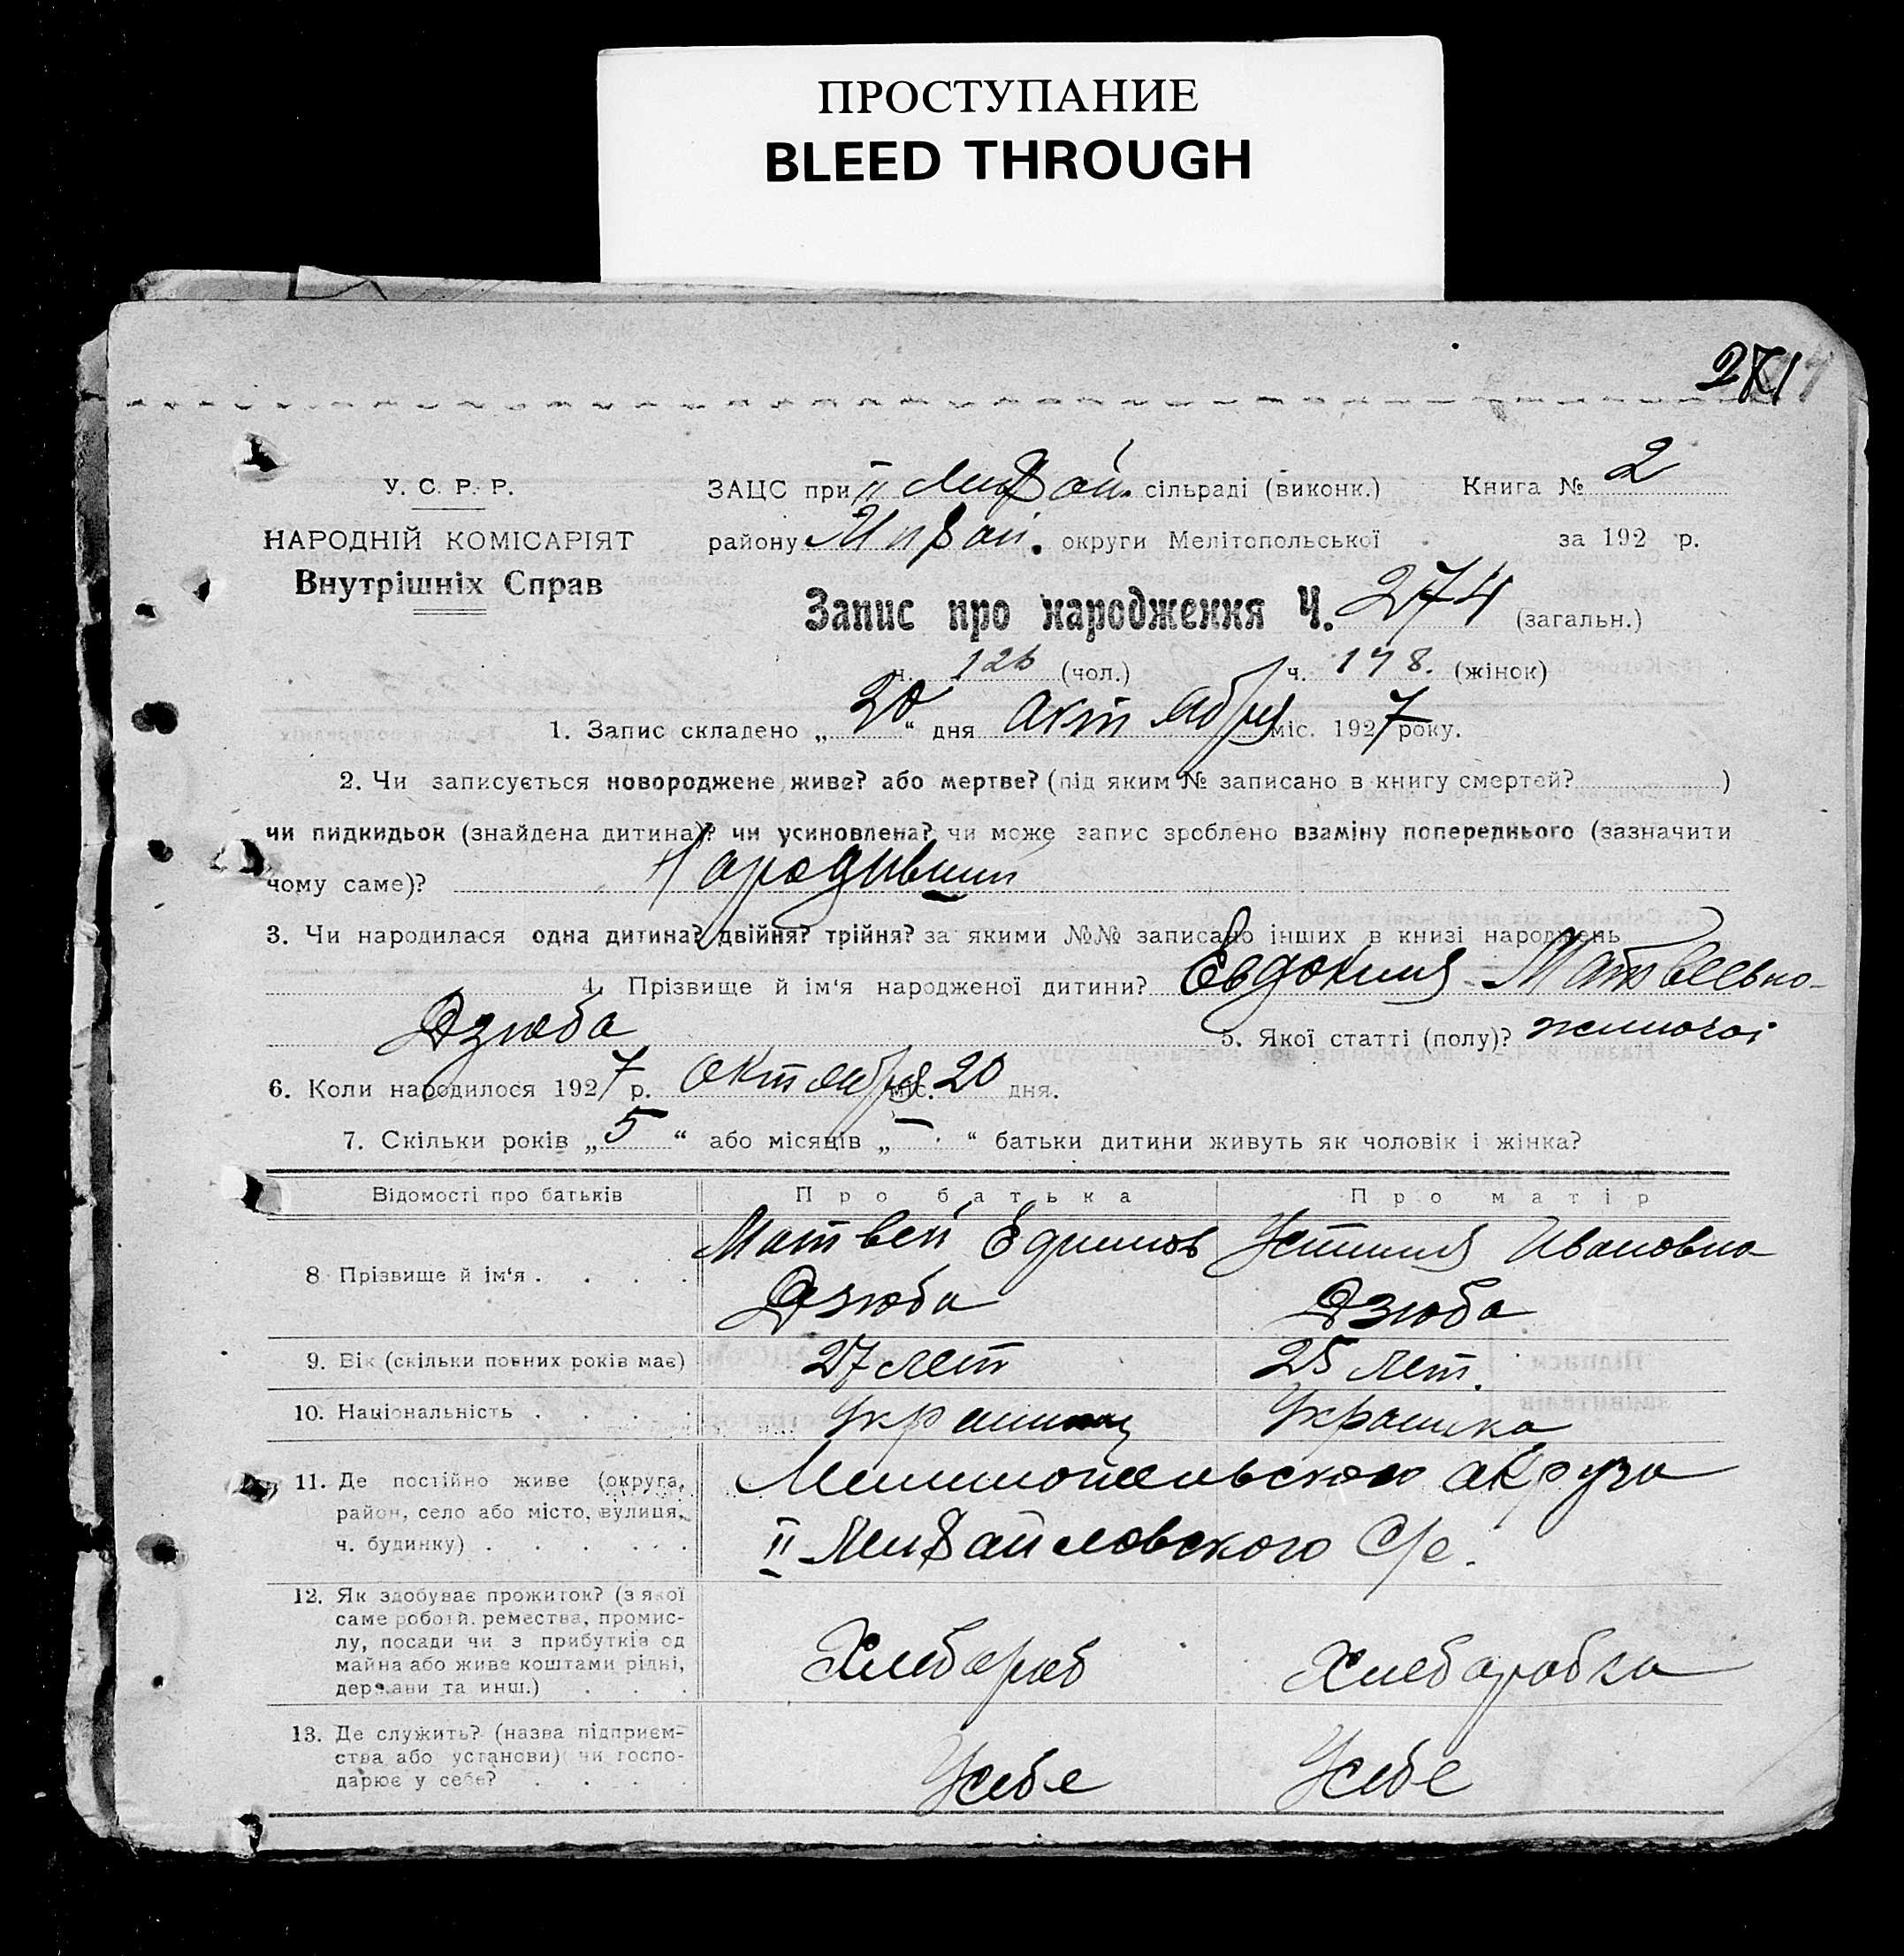 ПРОСТУПАНИЕ
BLEED THROUGH
У. С. Р. Р.
НАРОДНІЙ КОМІСАРІЯТ
Внутрішніх Справ
ЗАЦС при II Михай. сільраді (виконк.) Книга № 2
району Михай. округи Мелітопольської за 192 р.
Запис про народження Ч. 274 (загальн.)
ч. 126 (чол.) ч. 148. (жінок)
1. Запис складено „ 20 “ дня Актября міс. 1927 року.
2. Чи записується новороджене живе? або мертве? (під яким № записано в книгу смертей? )
чи пидкидьок (знайдена дитина)? чи усиновлена? чи може запис зроблено взаміну попереднього (зазначити
чому саме)?
3. Чи народилася одна дитина? двійня? трійня? за якими №№ записано інших в книзі народжень
4. Прізвище й ім‘я народженої дитини? Евдокия Матвеевно
Дзюба 5. Якої статті (полу)? жиночоі
6. Коли народилося 1927 р. октября міс. 20 дня.
7. Скільки років „ 5 “ або місяців „ — “ батьки дитини живуть як чоловік і жінка?
Відомості про батьків Про батька Про матір
8 Прізвище й ім‘я . . . . Матвей Ефимов Устиния Ивановна
Дзюба Дзюба
9. Вік (скільки повних років має) 27 лет 25 лет.
10. Національність . . . . Украинец Украинка
11. Де постійно живе (округа, Мелитопольского округа
район, село або місто, вулиця,
ч. будинку) . . . . . . II Михайловского С/с.
12. Як здобуває прожиток? (з якої
саме роботи, ремества, промис-
лу, посади чи з прибутків од
майна або живе коштами рідні,
держави та инш.) . . . Хлебароб Хлебаробка
13. Де служить? (назва підприєм-
ства або установи) чи госпо-
дарює у себе? . . . . Усебе Усебе